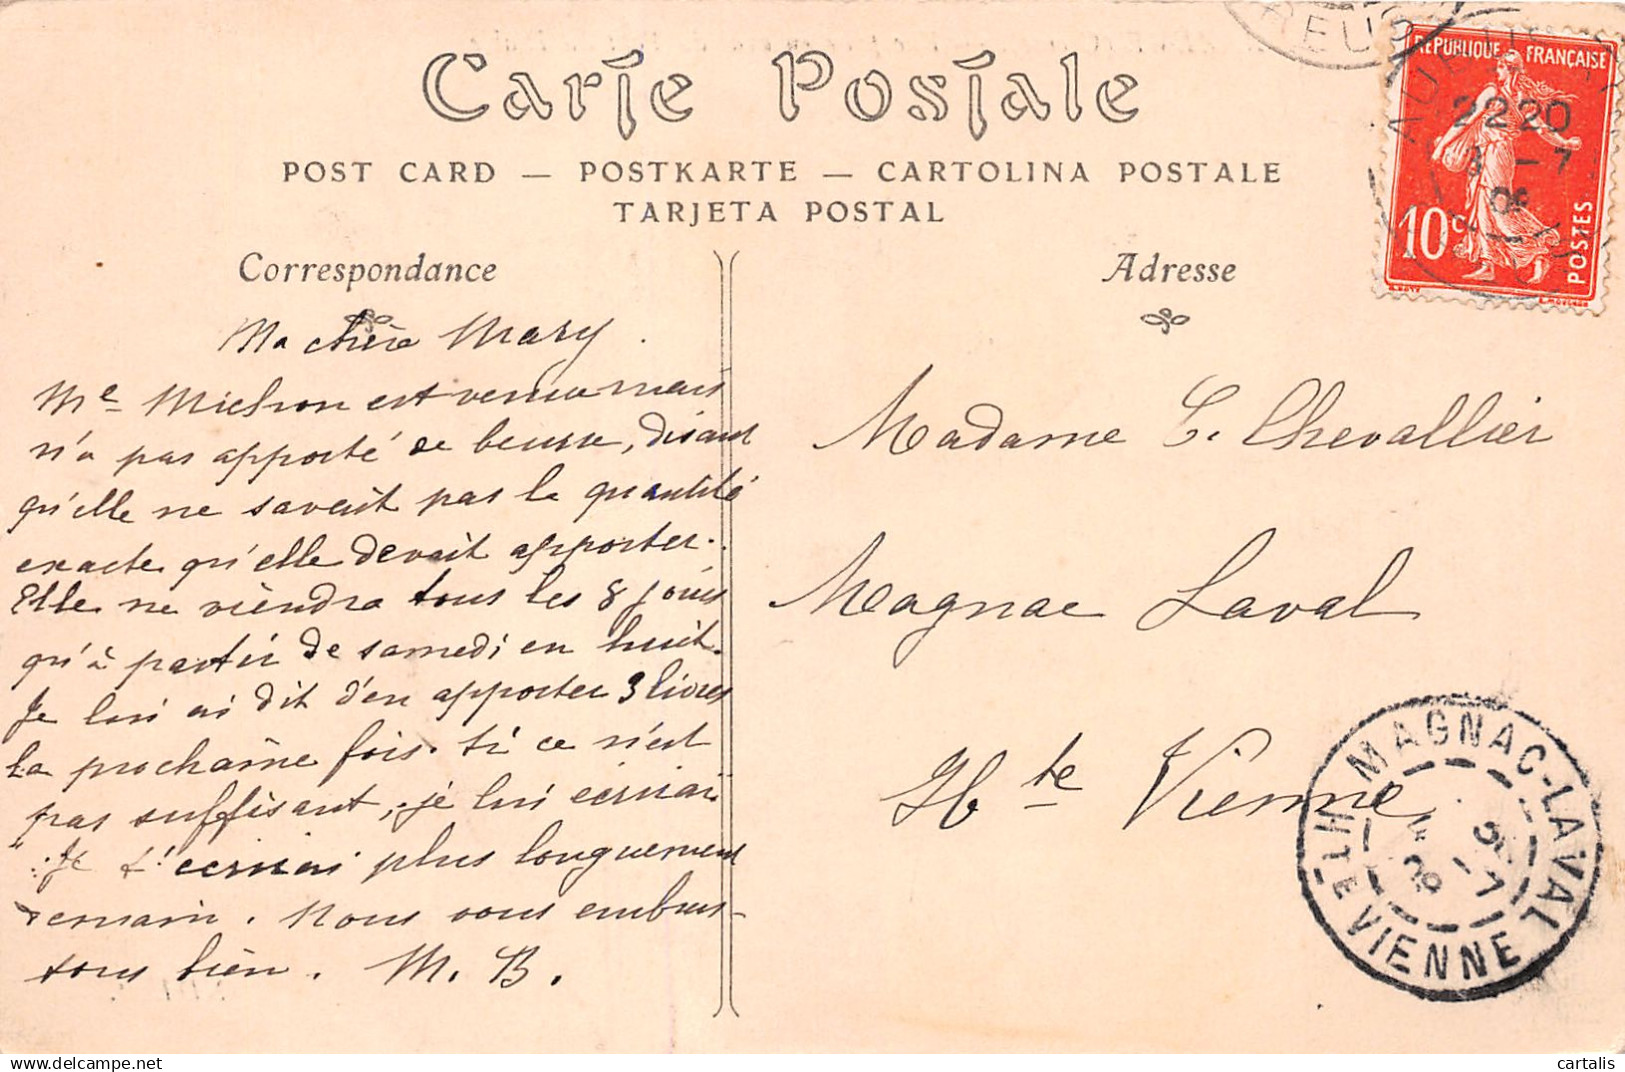 Carte Postale
POST CARD — POSTKARTE — CARTOLINA POSTALE
TARJETA POSTAL
Correspondance
Ma chère Mary
Me Michron est venue mais
n'a pas apporté de beurre, disant
qu'elle ne savait pas la quantité
exacte qu'elle devait apporter.
Elle ne viendra tous les 8 jours
qu'à partir de samedi en huit.
Je lui ai dit d'en apporter 3 livres
la prochaine fois. Si ce n'est
pas suffisant, je lui écrirai
Je t'écrirai plus longuement
demain. Nous vous embras-
sons bien. M. B.
Adresse
Madame C. Chevallier
Magnac Laval
Hte Vienne
REPUBLIQUE FRANÇAISE
10c
POSTES
REUS
2220
-7
MAGNAC-LAVAL
HTE VIENNE
-7
cartalis